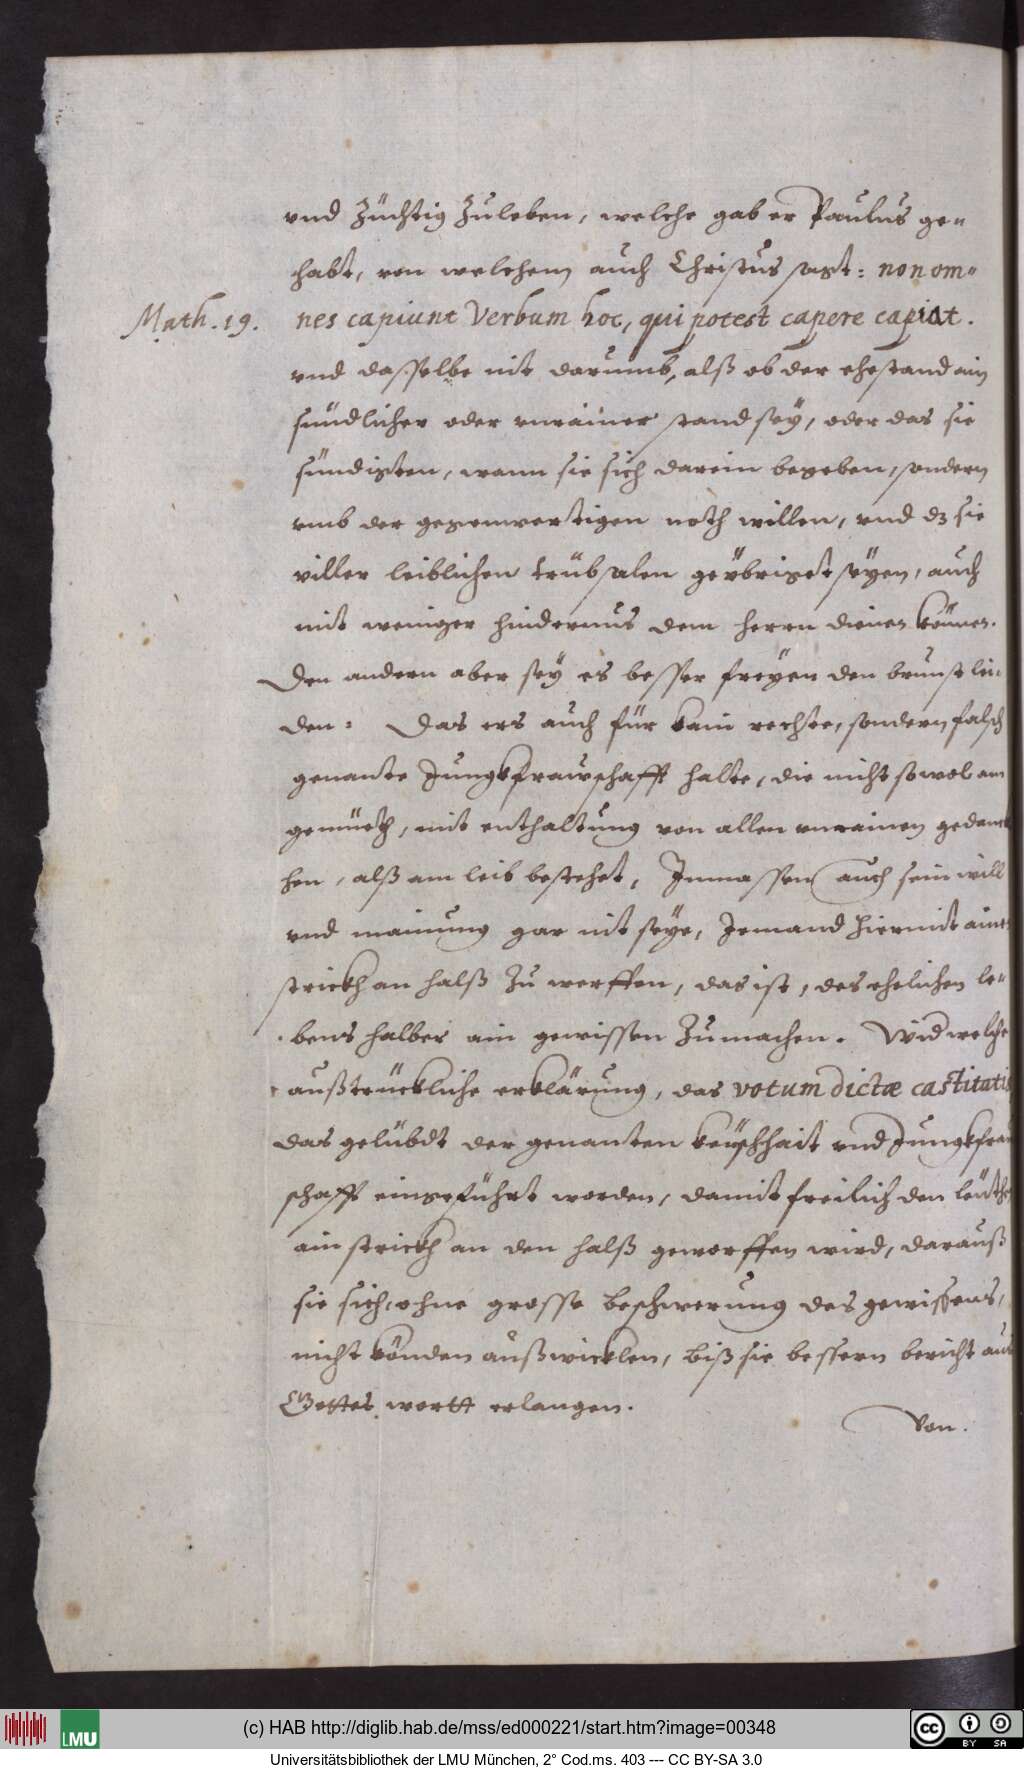 vnd züchtig zuleben, welche gab er Paulus ge=
habt, von welchem auch Christus sagt: non om=
Math. 19. nes capiunt Verbum hoc, qui potest capere capiat.
vnd dasselbe nit darumb, alß ob der ehestand ain
sündlicher oder vnrainer stand seÿ, oder das sie
sündigten, wann sie sich darein begeben, sondern
vmb der gegenwertigen noth willen, vnd dz sie
viller leiblichen trübsalen geübriget seÿen, auch
mit weniger hindernus dem herrn dienen können.
Den andern aber seÿ es besser freÿen den brunst lei=
den: Das ers auch für kain rechte, sondern falsch
genante Jungkfrawschafft halte, die nicht so wol am
gemüeth, mit enthaltung von allen vnrainen gedanck
hen, alß am leib bestehet, Inmassen auch sein will
vnd mainung gar nit seÿe, Jemand hiermit ainen
strickh an halß zu werffen, das ist, des ehelichen le=
bens halber ain gewissen zumachen. Wid welche
außtrückliche erklärung, das votum dictæ castitatis
das gelübdt der genanten keüschhait vnd Jungkfraw
schafft eingeführt worden, damit freilich den leüthen
ain strickh an den halß geworffen wird, darauß
sie sich, ohne grosse beschwerung des gewissens,
nicht könden außwicklen, biß sie bessern bericht auß
Gottes wortt erlangen.
Von.
(c) HAB http://diglib.hab.de/mss/ed000221/start.htm?image=00348
LMU
CC BY SA
Universitätsbibliothek der LMU München, 2° Cod.ms. 403 --- CC BY-SA 3.0